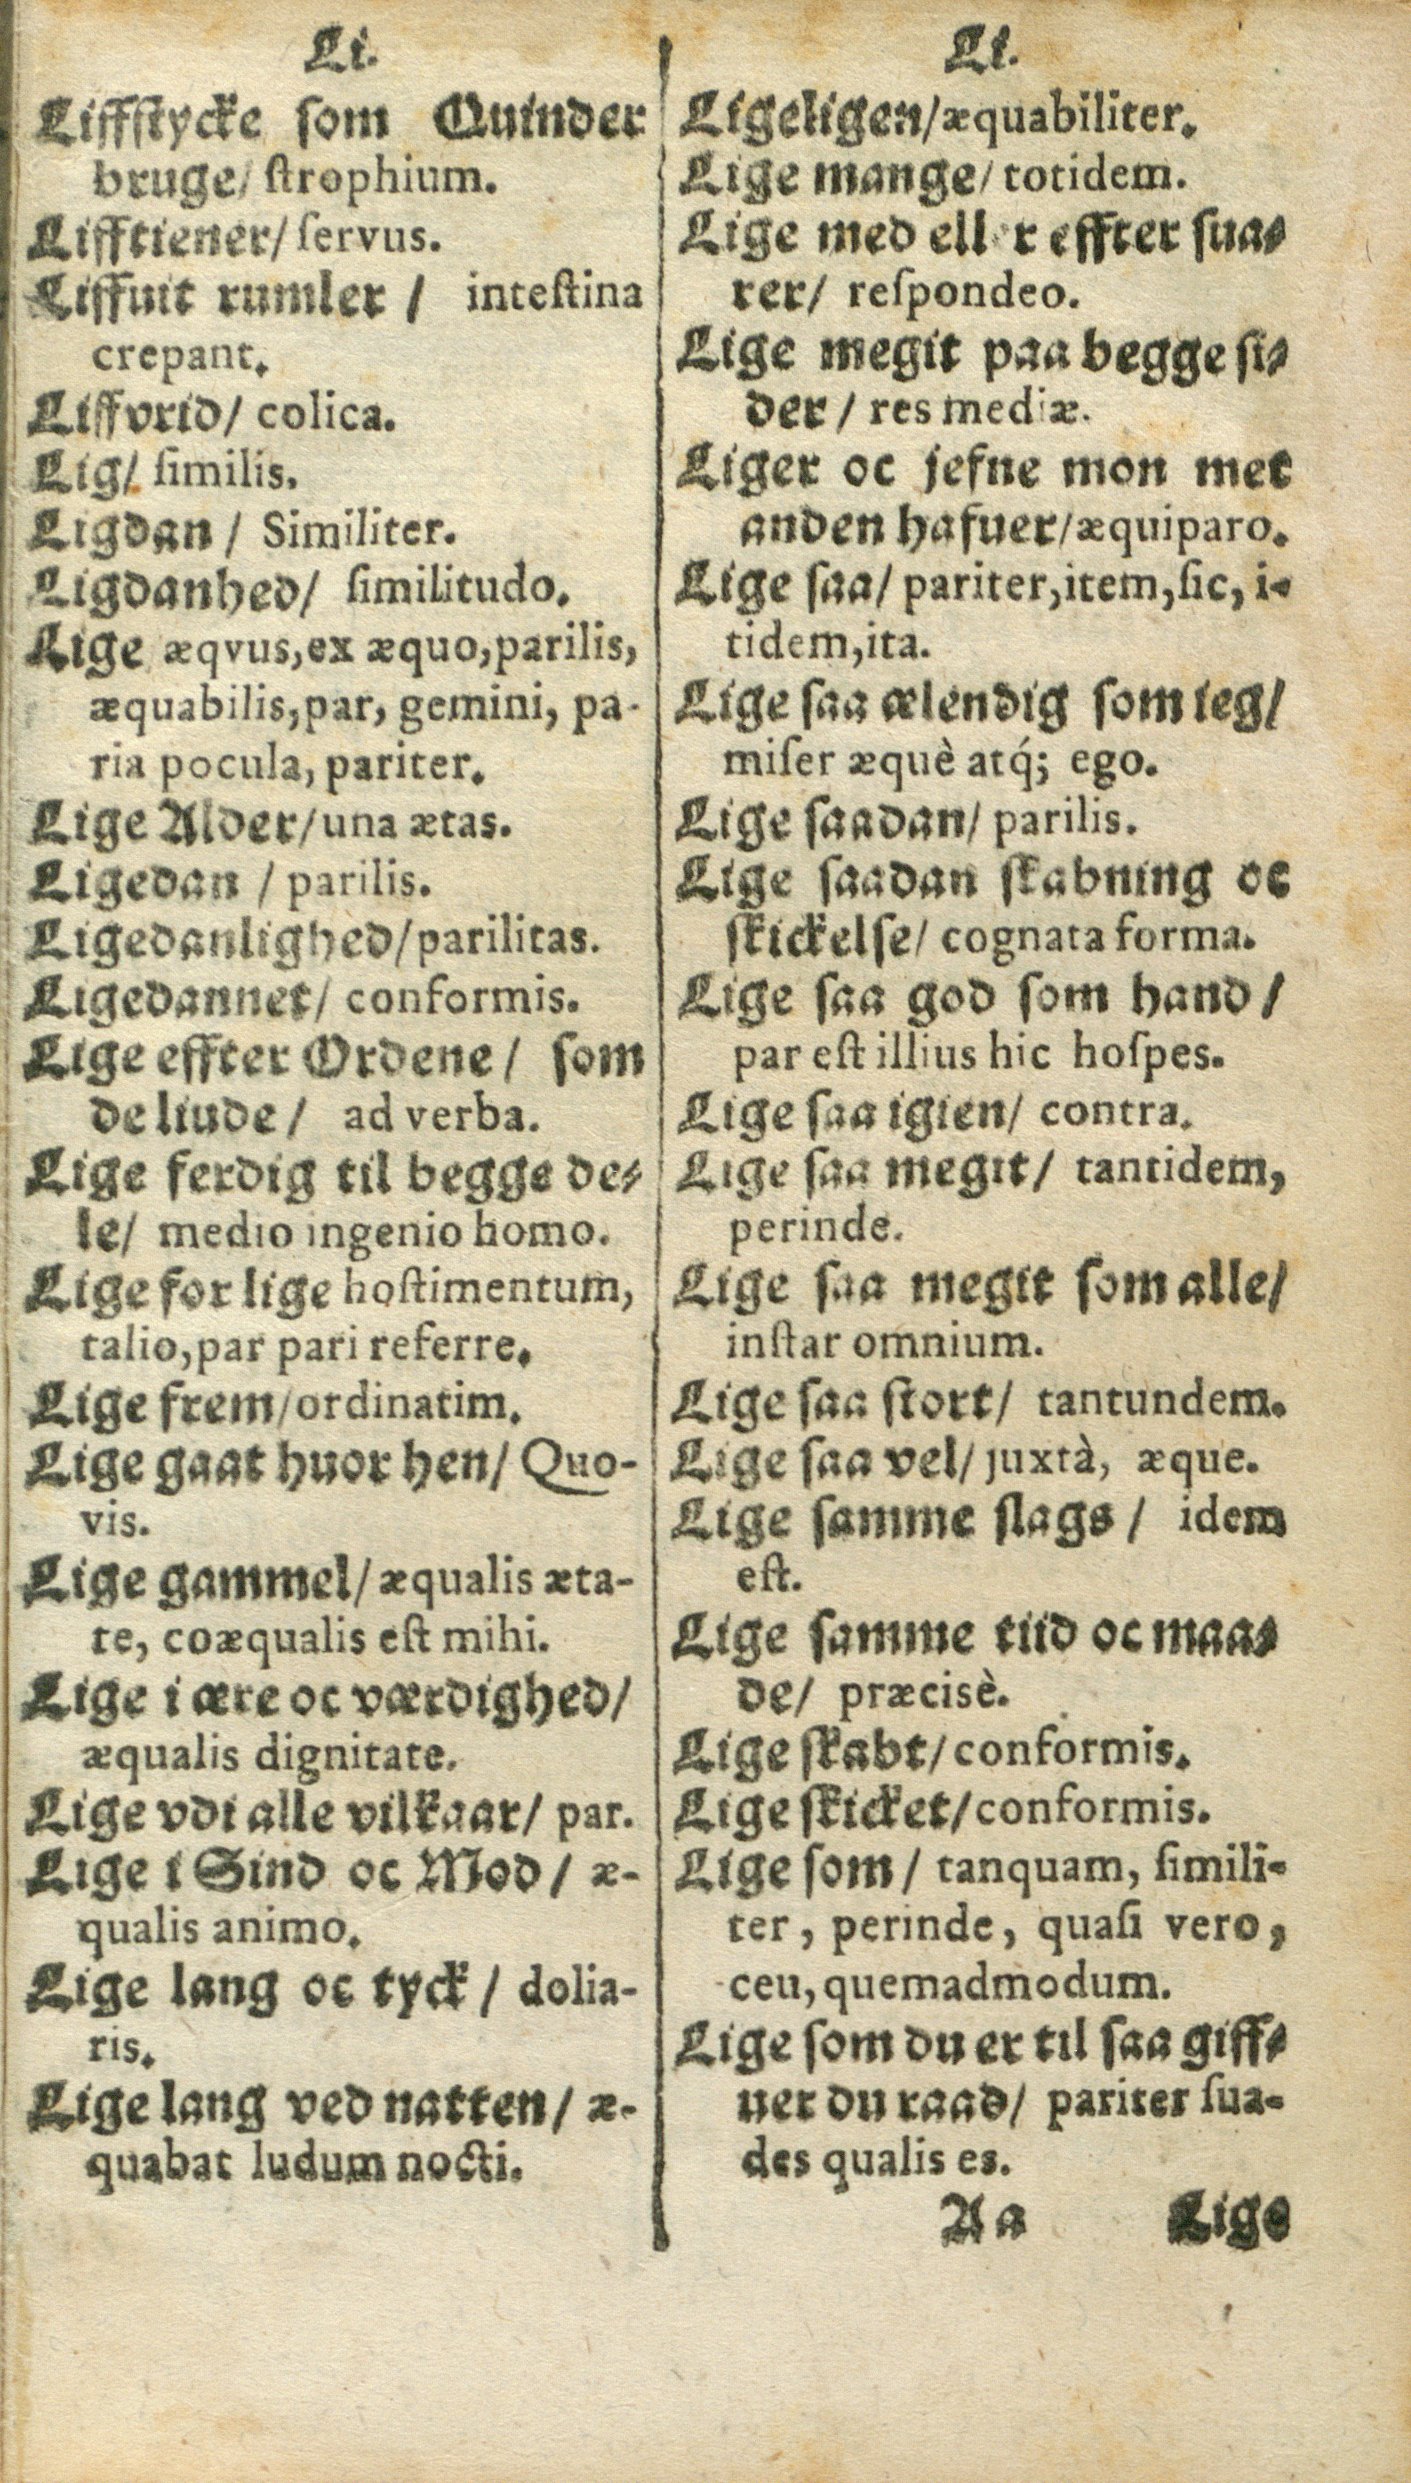 Li.
Liffstycke som Quinder
bruge/ ſtrophium.
Lifftiener/ ſervus.
Liffuit rumler / inteſtina
crepant.
Liffvrid/ colica.
Lig/ ſimilis.
Ligdan / Similiter.
Ligdanhed/ ſimilitudo.
Lige æqvus, ex æquo, parilis,
æquabilis, par, gemini, pa-
ria pocula, pariter.
Lige Alder/ una ætas.
Ligedan / parilis.
Ligedanlighed/ parilitas.
Ligedannet/ conformis.
Lige effter Ordene / som
de liude / ad verba.
Lige ferdig til begge de-
le/ medio ingenio homo.
Lige for lige hoſtimentum,
talio, par pari referre.
Lige frem/ ordinatim.
Lige gaat huor hen/ Quo-
vis.
Lige gammel/ æqualis æta-
te, coæqualis eſt mihi.
Lige i ære oc værdighed/
æqualis dignitate.
Lige vdi alle vilkaar/ par.
Lige i Sind oc Mod / æ-
qualis animo.
Lige lang oc tyck / dolia-
ris.
Lige lang ved natten/ æ-
quabat ludum nocti.
Li.
Ligeligen/ æquabiliter.
Lige mange/ totidem.
Lige med ell r effter sua-
rer/ reſpondeo.
Lige megit paa begge si-
der / res mediæ.
Liger oc jefne mon met
anden hafuer/ æquiparo.
Lige saa/ pariter, item, ſic, i-
tidem, ita.
Lige saa ælendig som ieg/
miſer æquè atq́; ego.
Lige saadan/ parilis.
Lige saadan skabning oc
skickelse/ cognata forma.
Lige saa god som hand /
par eſt illius hic hoſpes.
Lige saa igien/ contra.
Lige saa megit/ tantidem,
perinde.
Lige saa megit som alle/
inſtar omnium.
Lige saa stort/ tantundem.
Lige saa vel/ juxtà, æque.
Lige samme slags / idem
eſt.
Lige samme tiid oc maa-
de/ præcisè.
Lige skabt/ conformis.
Lige skicket/ conformis.
Lige som / tanquam, ſimili-
ter, perinde, quaſi vero,
ceu, quemadmodum.
Lige som du er til saa giff-
uer du raad/ pariter ſua-
des qualis es.
Aa Lige